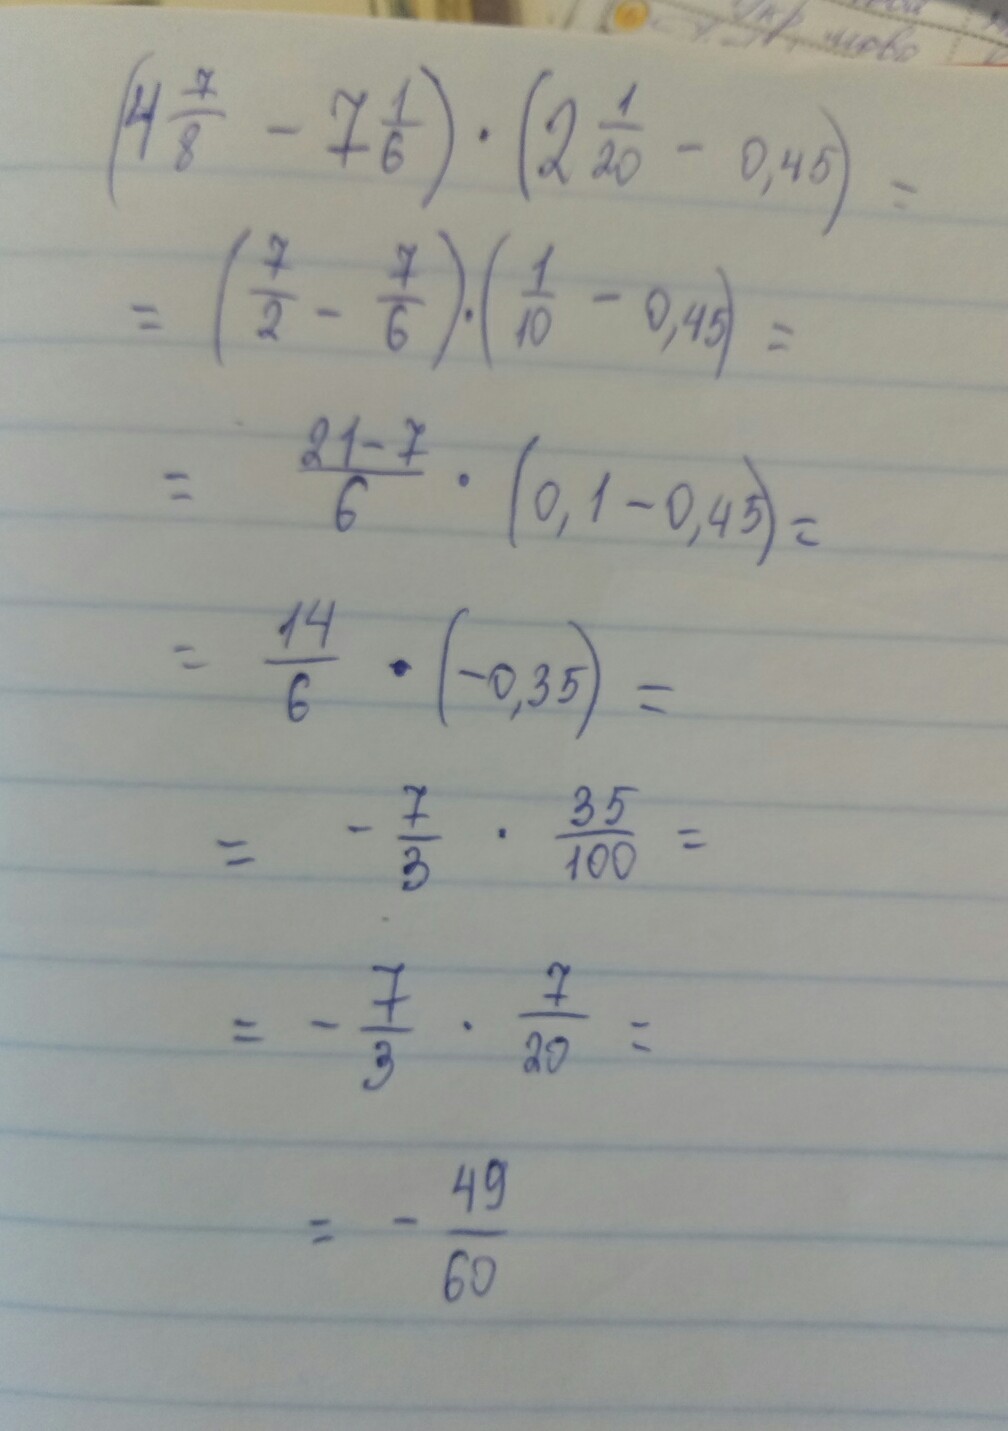 (4 7/8 - 7 1/6) · (2 1/20 - 0,45) =
= (7/2 - 7/6) · (1/10 - 0,45) =
= 21-7/6 · (0,1 - 0,45) =
= 14/6 · (-0,35) =
= - 7/3 · 35/100 =
= - 7/3 · 7/20 =
= - 49/60